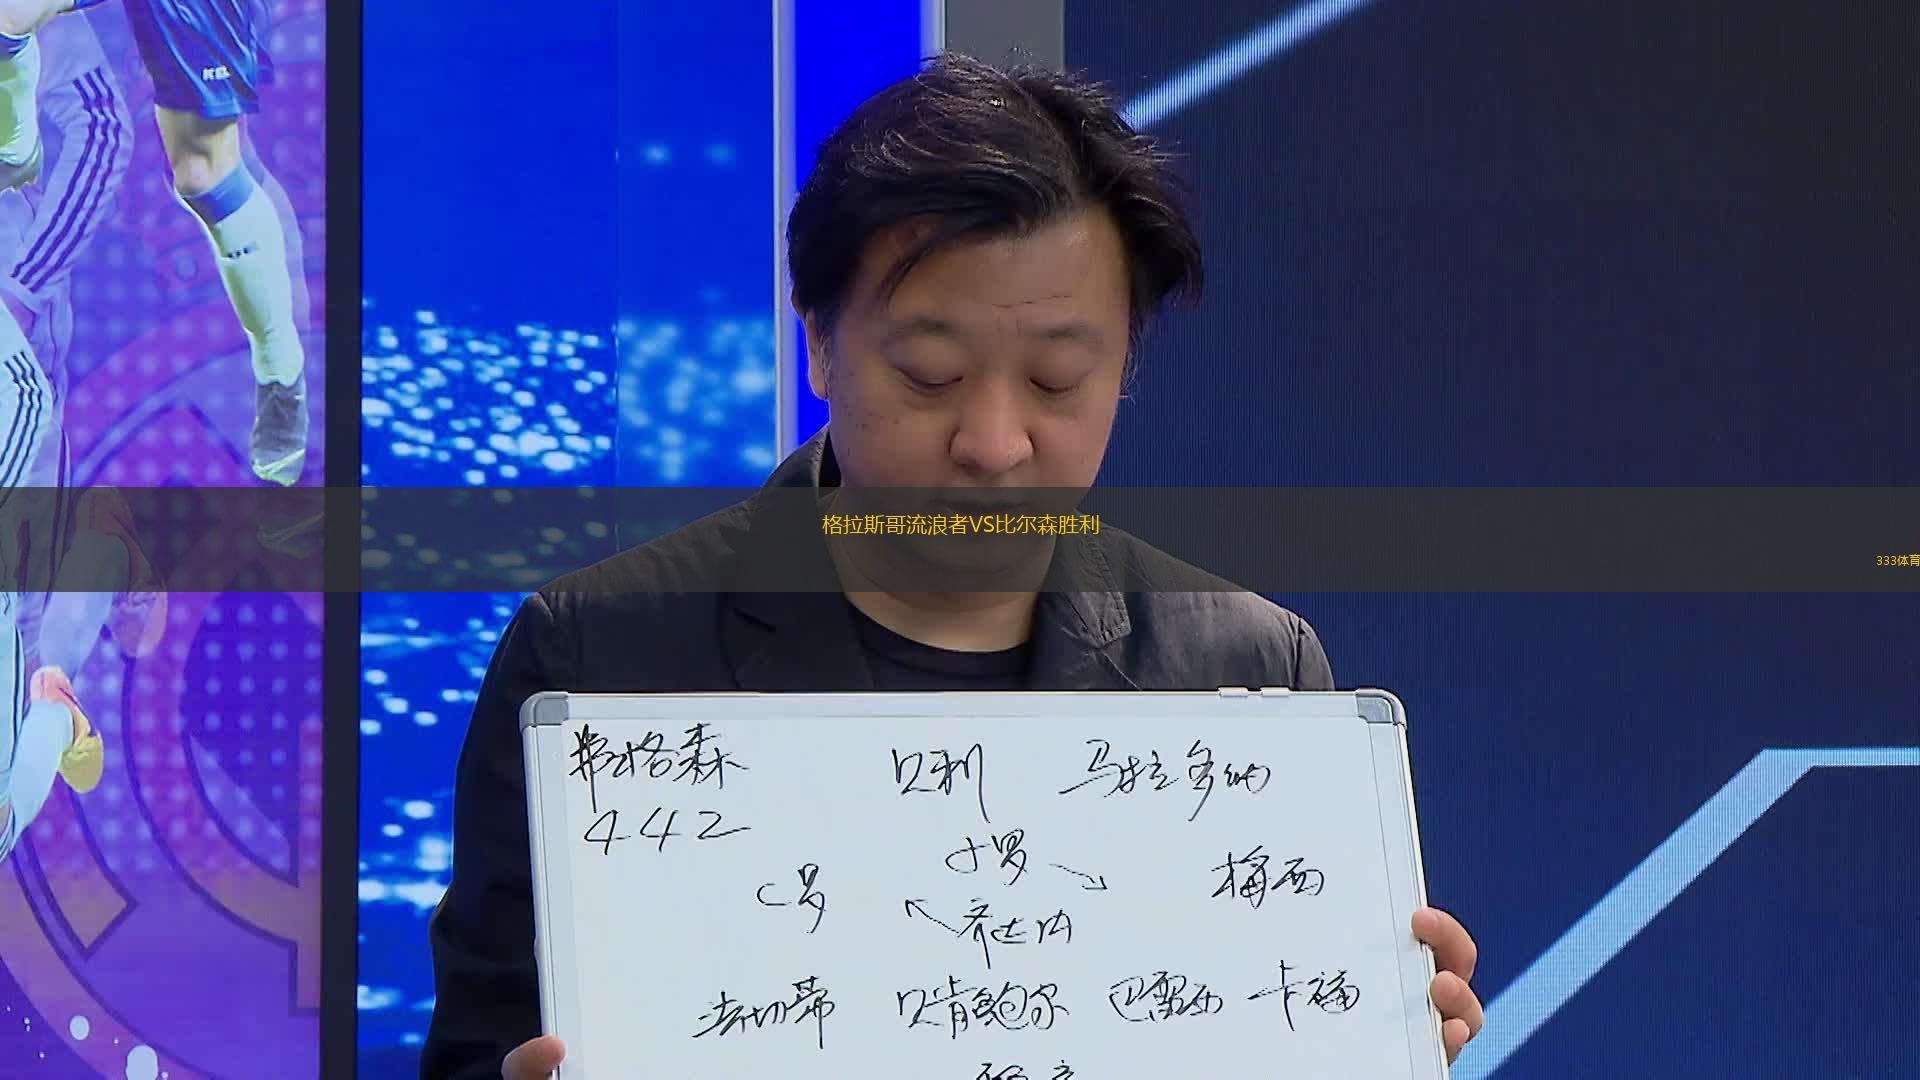 格拉斯哥流浪者VS比尔森胜利
333体育
弗格森 贝利 马拉多纳
442
小罗
C罗 梅西
齐达内
法切蒂 贝肯鲍尔 巴雷西 卡福